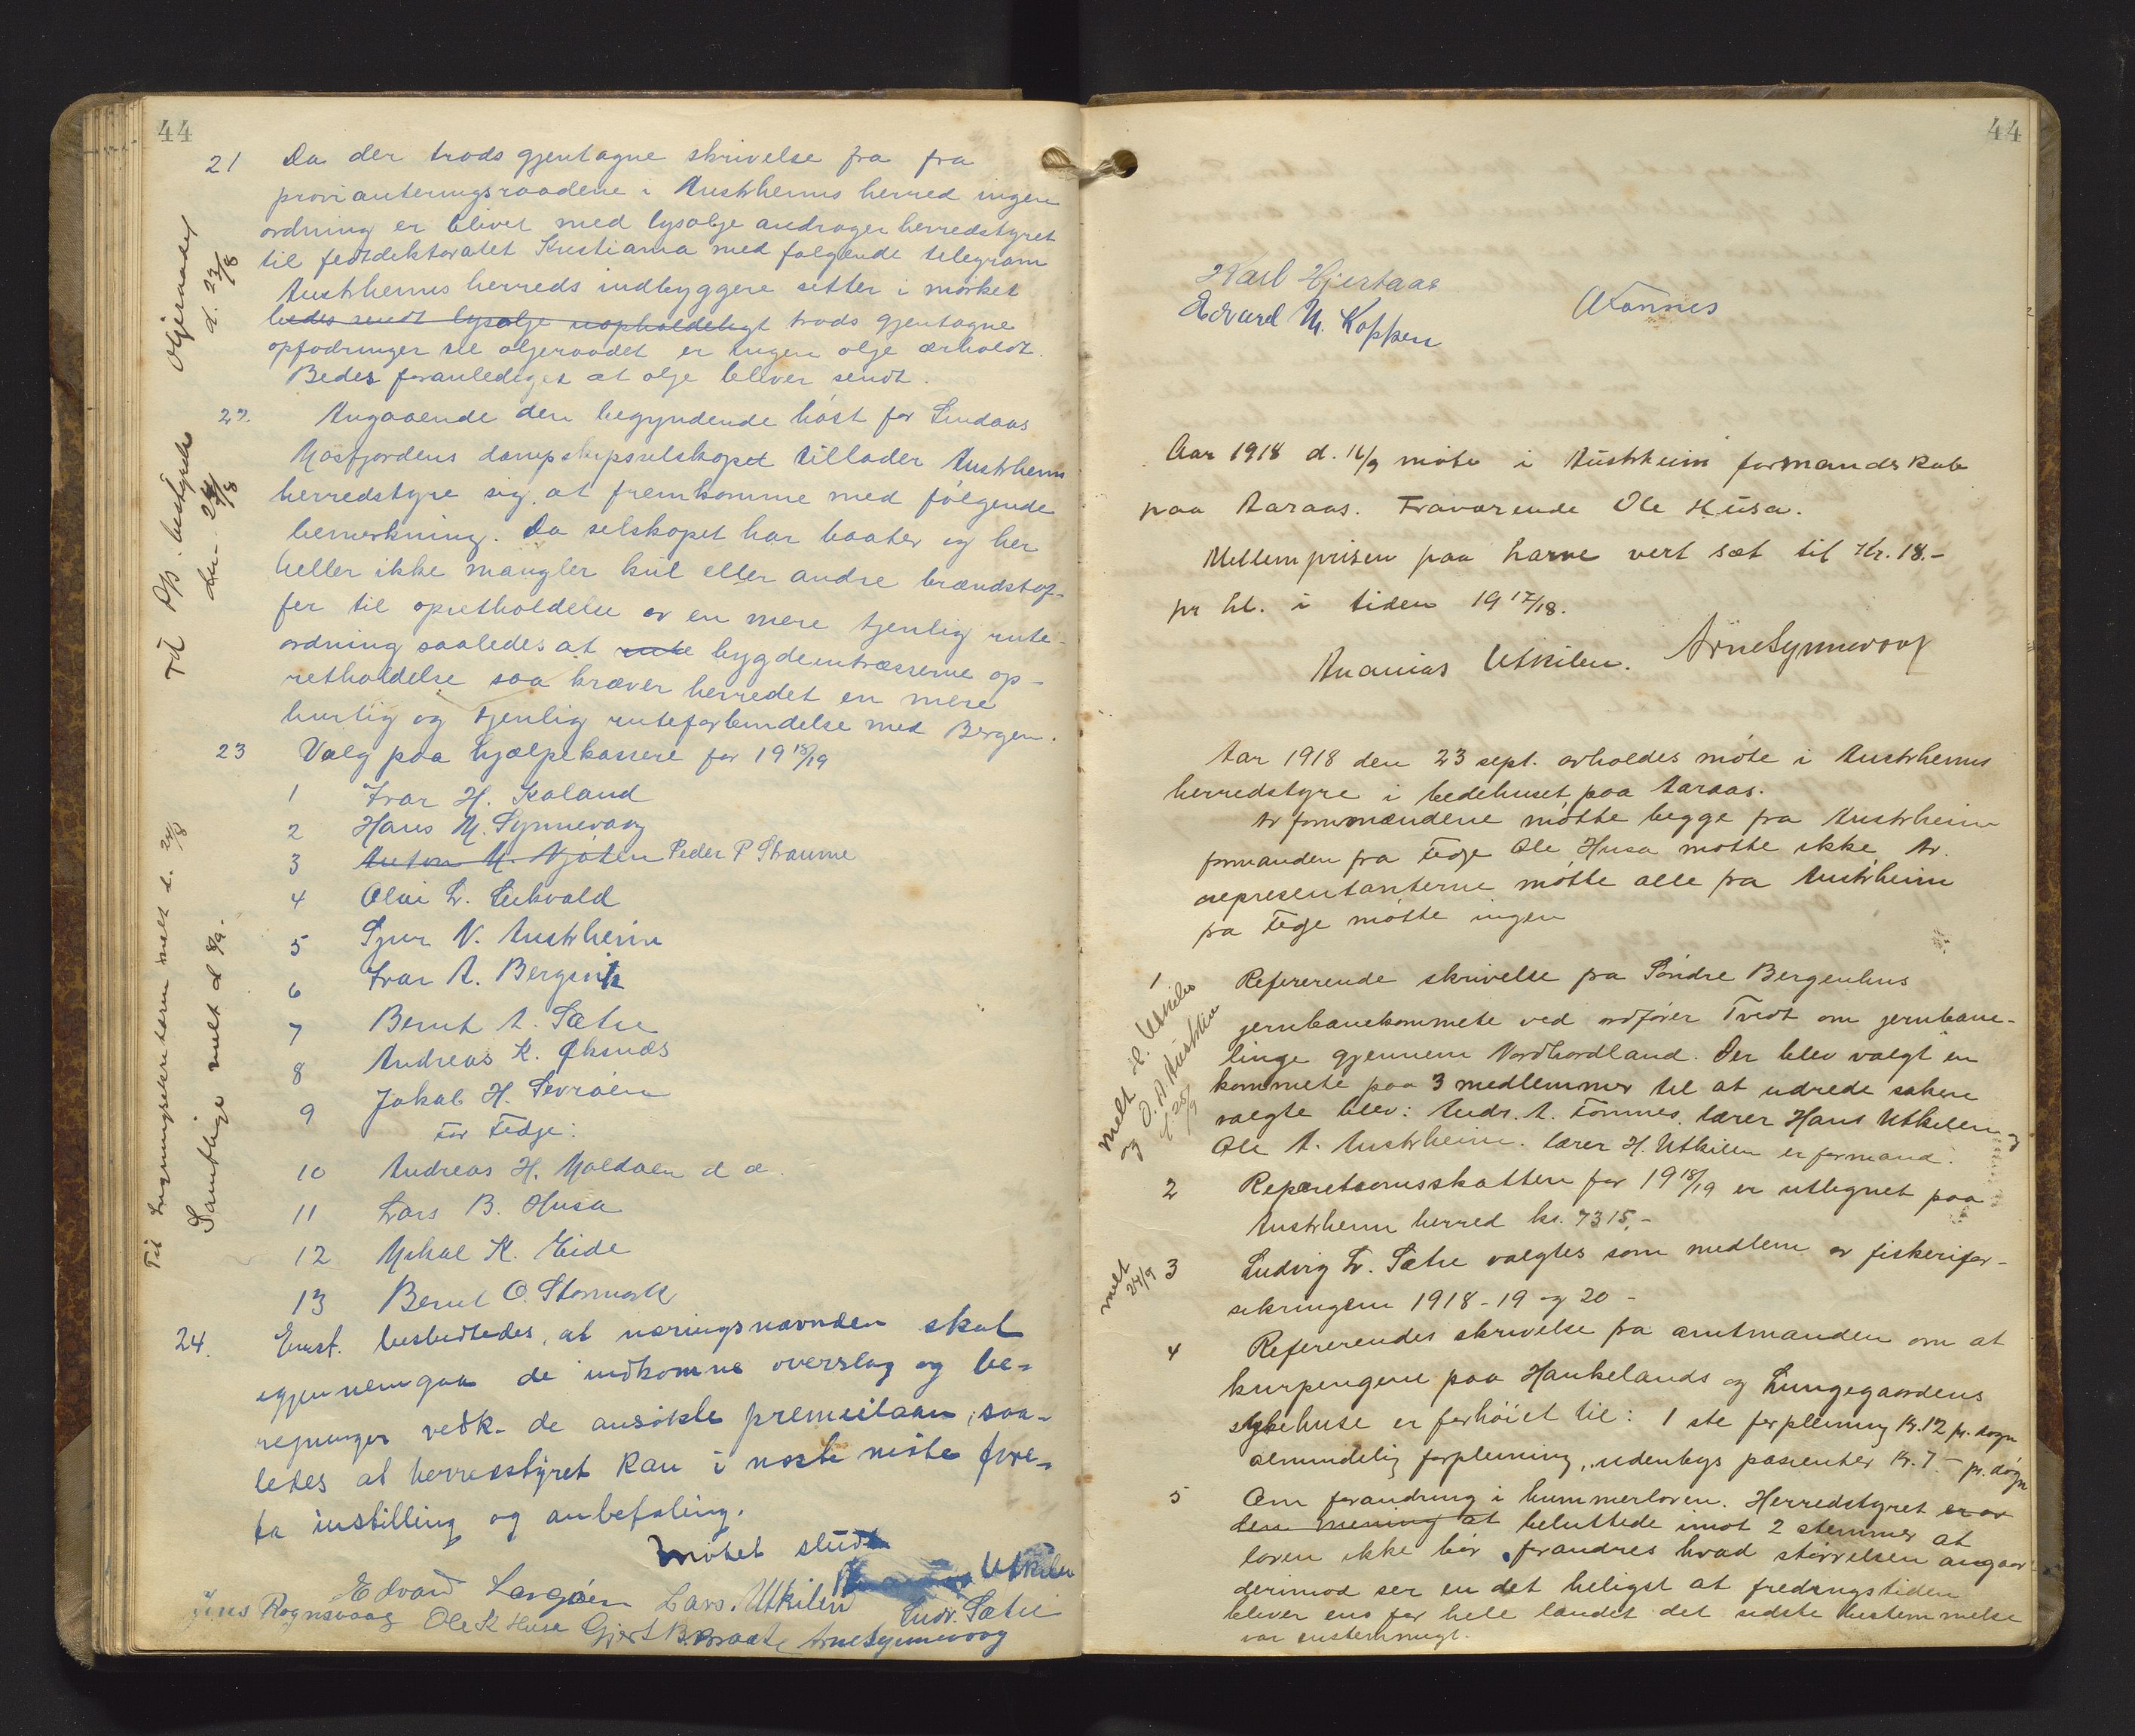 44
21 Da der trods gjentagne skrivelse fra fra
provianteringsraadene i Austrheims herred ingen
ordning er blivet med lysolje andrager herredstyret
til fedtdektoratet Kristiania med følgende telegram
Austrheims herreds indbyggere sitter i mørket
bedes sendt lysolje uopholdeligt trods gjentagne
opfodringer til oljeraadet er ingen olje ærholdt.
Bedes foranlediget at olje bliver sendt.
Oljeraadet
d. 23/8
22. Angaaende den begyndende høst for Lindaas
Masfjordens dampskipsselskapet tillader Austrheims
herredstyre sig at fremkomme med følgende
bemerkning. Da selskapet har baater og her
heller ikke mangler kul eller andre brændstof-
fer til opretholdelse av en mere tjenlig rute-
ordning saaledes at rute bygdeintræsserne op-
retholdelse saa kræver herredet en mere
hurtig og tjenlig ruteforbindelse med Bergen.
den 24/8
23 Valg paa hjælpekassere for 19 18/19
1 Ivar H. Kaland
2 Hans M. Synnevaag
3 Anton M. Njøten Peder P Straume
4 Olai L. Leikvold
5 Sjur N. Austrheim
6 Ivar A. Bergsvik
7 Bernt A. Sætre
8 Andreas K. Øksnæs
9 Jakob H. Sevrøen
For Fedje:
10 Andreas H. Moldøen d æ.
11 Lars B. Husa
12 Mikal K. Eide
13 Bernt O. Stormark
Til d. 24/8
Samtlige melt d 8/9.
24. Enst. besluttedes, at næringsnævnden skal
igjennemgaa de indkomne overslag og be-
regninger vedk. de ansøkte premielaan, saa-
ledes at herredstyret kan i næste møte fore-
ta instilling og anbefaling.
Møtet slut
Utkilen
Edvard Langøen Lars. Utkilen Andr. Sætre
Jens Rognsvaag Ole K Husa Gjert B. Braate Arne Synnevaag
44
Karl Hjertaas
Edvard M. Koppen
A Tonnes
Aar 1918 d. 16/9 møte i Austrheim formandskab
paa Aaraas. Fraværende Ole Husa.
Mellemprisen paa havre vert sæt til Kr. 18.-
pr hl. i tiden 19 17/18.
Ananias Utkilen. Arne Synnevaag
Aar 1918 den 23 sept. avholdes møte i Austrheims
herredstyre i bedehuset paa Aaraas.
Av formændene møtte begge fra Austrheim
formanden fra Fedje Ole Husa møtte ikke. Av
representanterne møtte alle fra Austrheim
fra Fedje møtte ingen
1 Refererende skrivelse fra Søndre Bergenhus
jernbanekommete ved ordfører Tvedt om jernbane-
linge gjennem Nordhordland. Der blev valgt en
kommete paa 3 medlemmer til at udrede saken
valgte blev: Andr. A. Tonnes, lærer Hans Utkilen og
Ole A. Austrheim. lærer H. Utkilen er formand.
melt H. Utkilen
og O. A. Austrheim
d. 25/9
2 Reparetionsskatten for 19 18/19 er utlignet paa
Austrheim herred kr. 7315,-
3 Ludvig L. Sætre valgtes som medlem av fiskerifor-
sikringen 1918-19 og 20 -
melt
24/9
4 Refererendes skrivelse fra amtmanden om at
kurpengene paa Haukelands og Lungegaardens
sykehuse er forhøiet til: 1 ste forpleining Kr. 12 pr. døgn
almindelig forpleining, udenbys pasienter Kr. 7.- pr. døgn
5 Om forandring i hummerloven. Herredstyret er av
den mening at beluttede imot 2 stemmer at
loven ikke bør forandres hvad størrelsen angaar
derimod ser en det heligst at fredningstiden
bliver ens for hele landet det sidste bestemmelse
var enstemmigt.